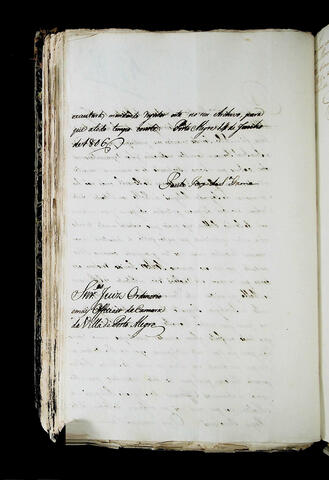 executará, mandando registar esta no seu Archivo, para
que a todo tempo conste. Porto Alegre 14 de Junho
de 1806
Paulo Jozé da Sª Gama
Snrˢ Juiz Ordinario
e mais Officiaes da Camara
da Villa de Porto Alegre